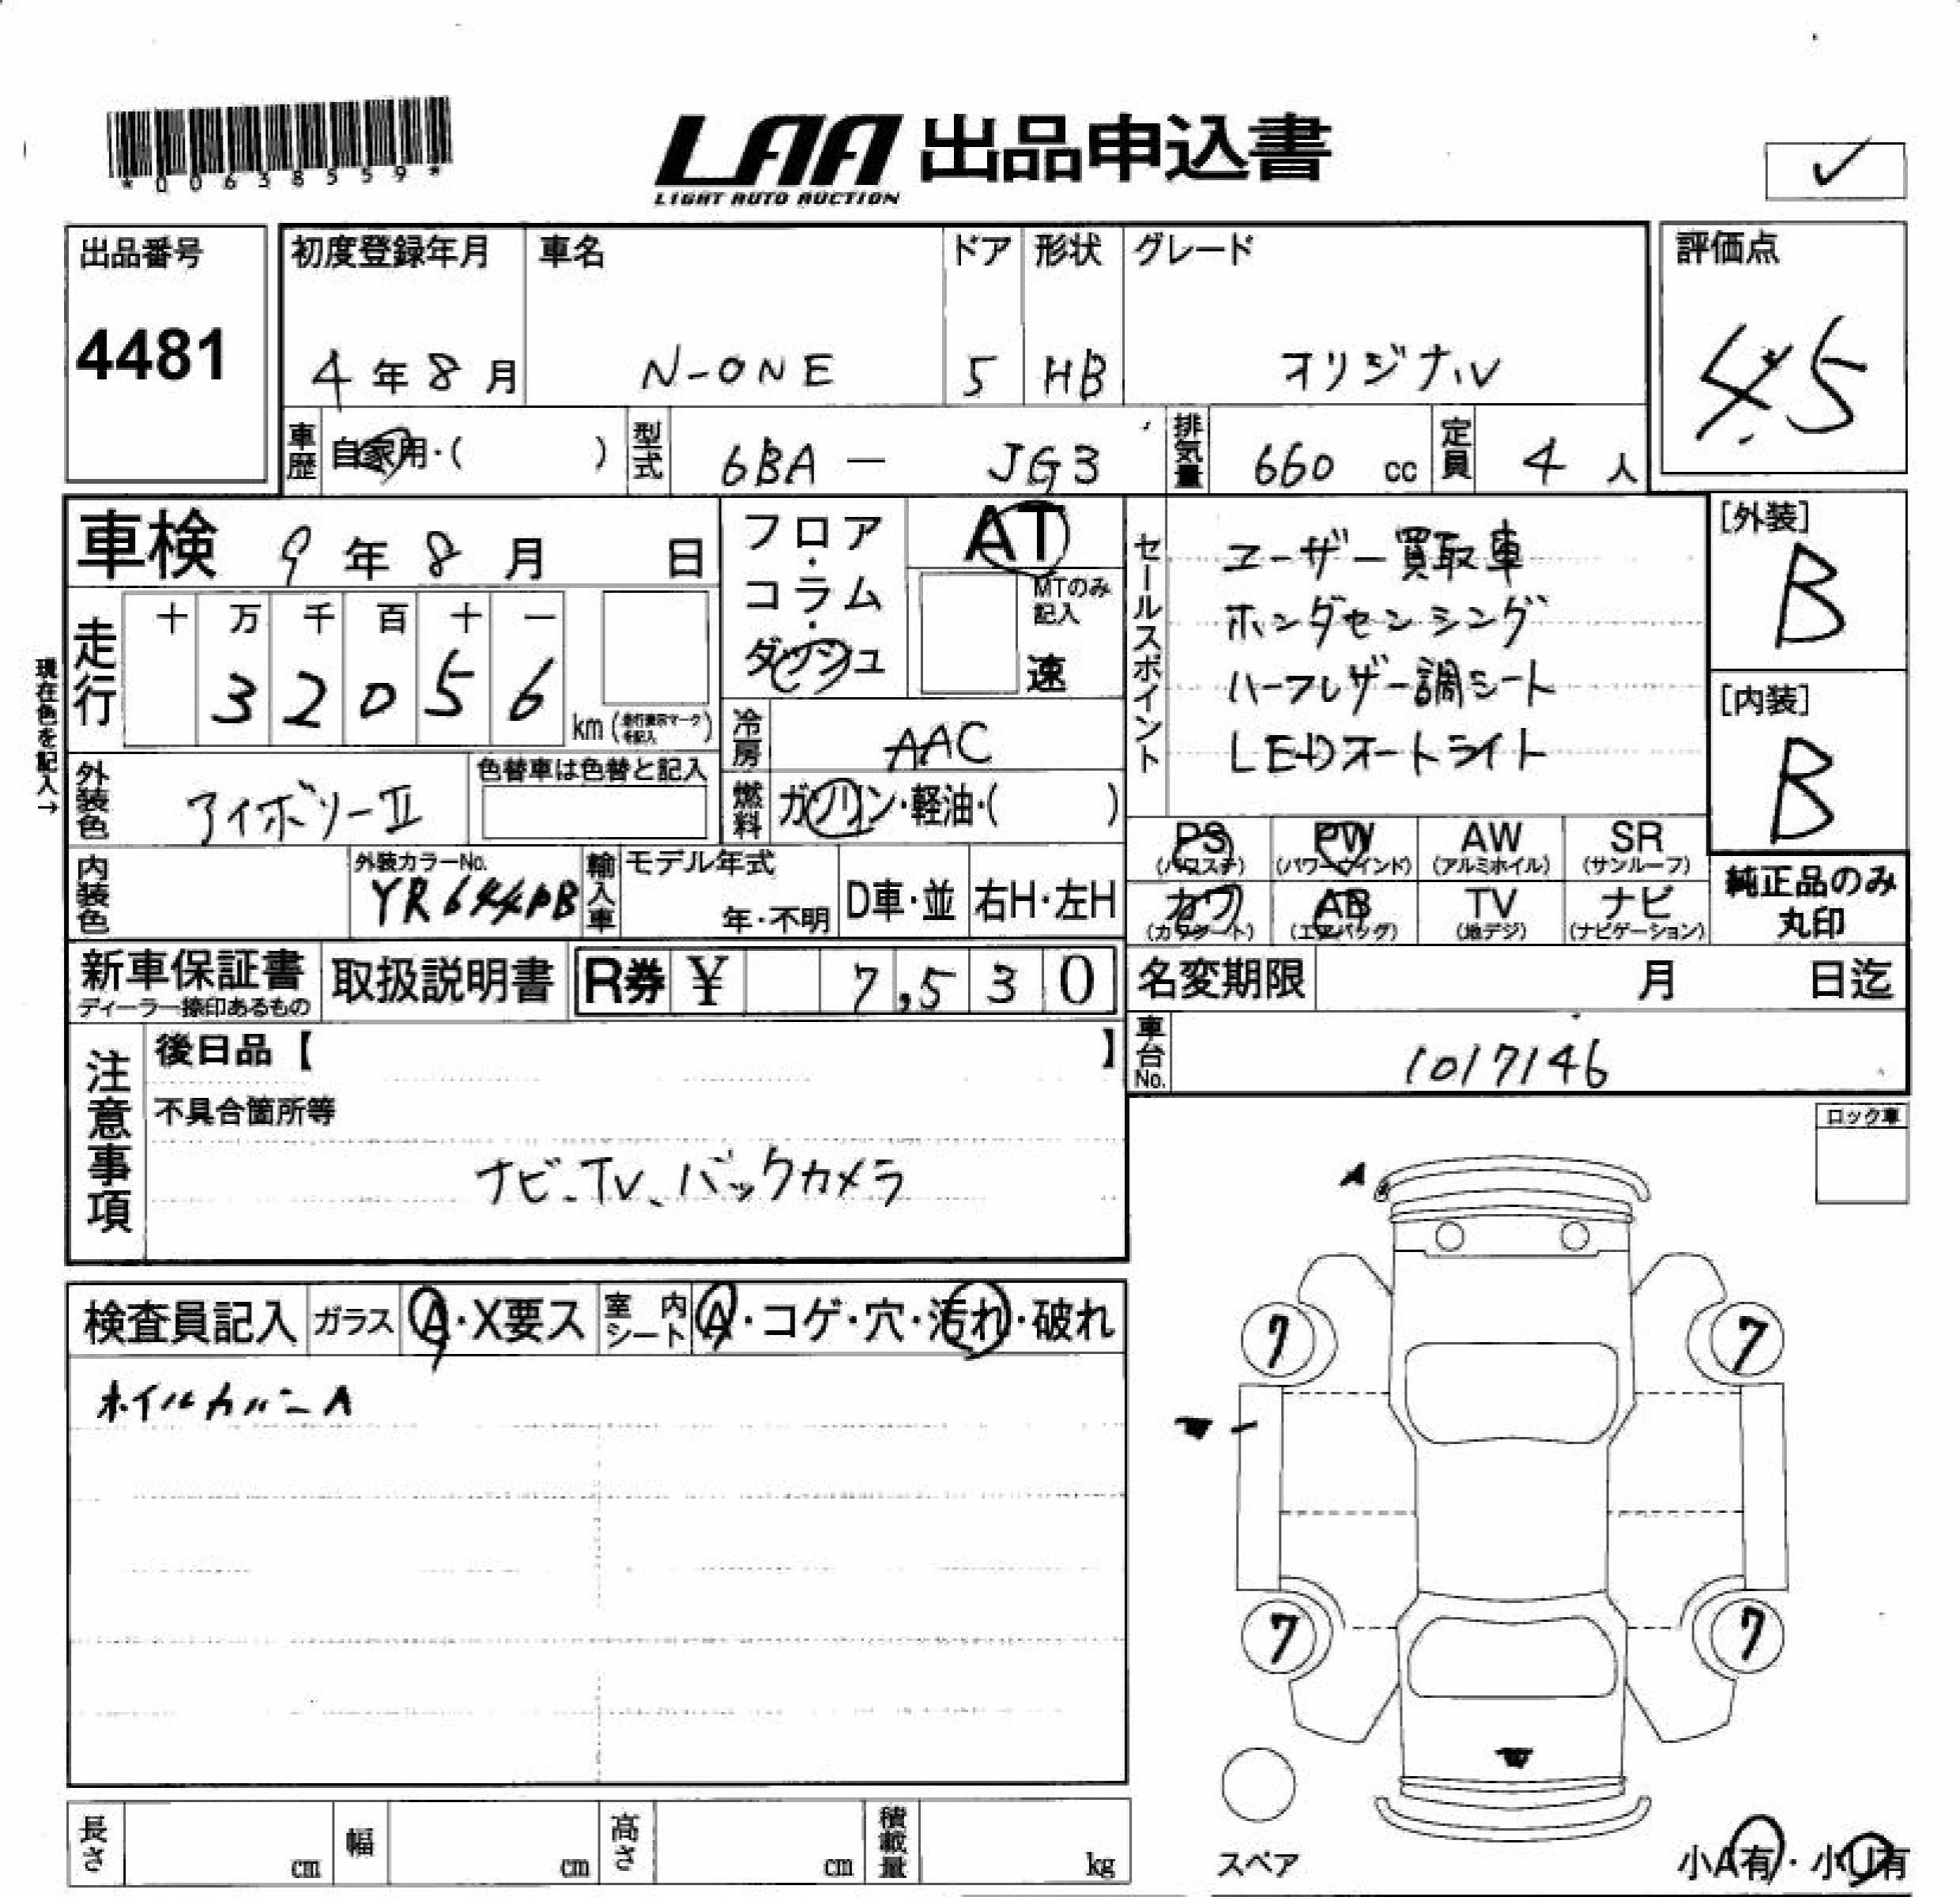 *00638559*
LAA 出品申込書
LIGHT AUTO AUCTION
✓
出品番号
4481
初度登録年月
4年8月
車名
N-ONE
ドア
5
形状
HB
グレード
オリジナル
評価点
4.5
車歴 自家用・( )
型式 6BA - JG3
排気量 660 cc
定員 4 人
車検 9年8月 日
フロア・コラム・ダッシュ
AT
MTのみ記入
速
セールスポイント
ユーザー買取車
ホンダセンシング
ハーフレザー調シート
LEDオートライト
[外装]
B
[内装]
B
現在色を記入→
走行
十 万 千 百 十 一
3 2 0 5 6
km
冷房 AAC
燃料 ガソリン・軽油・( )
外装色 アイボリーII
色替車は色替と記入
内装色
外装カラーNo.
YR644PB
輸入車
モデル年式
年・不明
D車・並
右H・左H
PS (パワステ)
PW (パワーウインド)
AW (アルミホイル)
SR (サンルーフ)
カワ (カワシート)
AB (エアバッグ)
TV (地デジ)
ナビ (ナビゲーション)
純正品のみ丸印
新車保証書
ディーラー捺印あるもの
取扱説明書
R券 ¥ 7,530
名変期限 月 日迄
車台No. 1017146
注意事項
後日品【 】
不具合箇所等
ナビ、TV、バックカメラ
ロック車
A
検査員記入
ガラス A・X要ス
室内シート A・コゲ・穴・汚れ・破れ
ホイルカバーA
7 7
7 7
スペア
小A有・小U有
長さ cm
幅 cm
高さ cm
積載量 kg